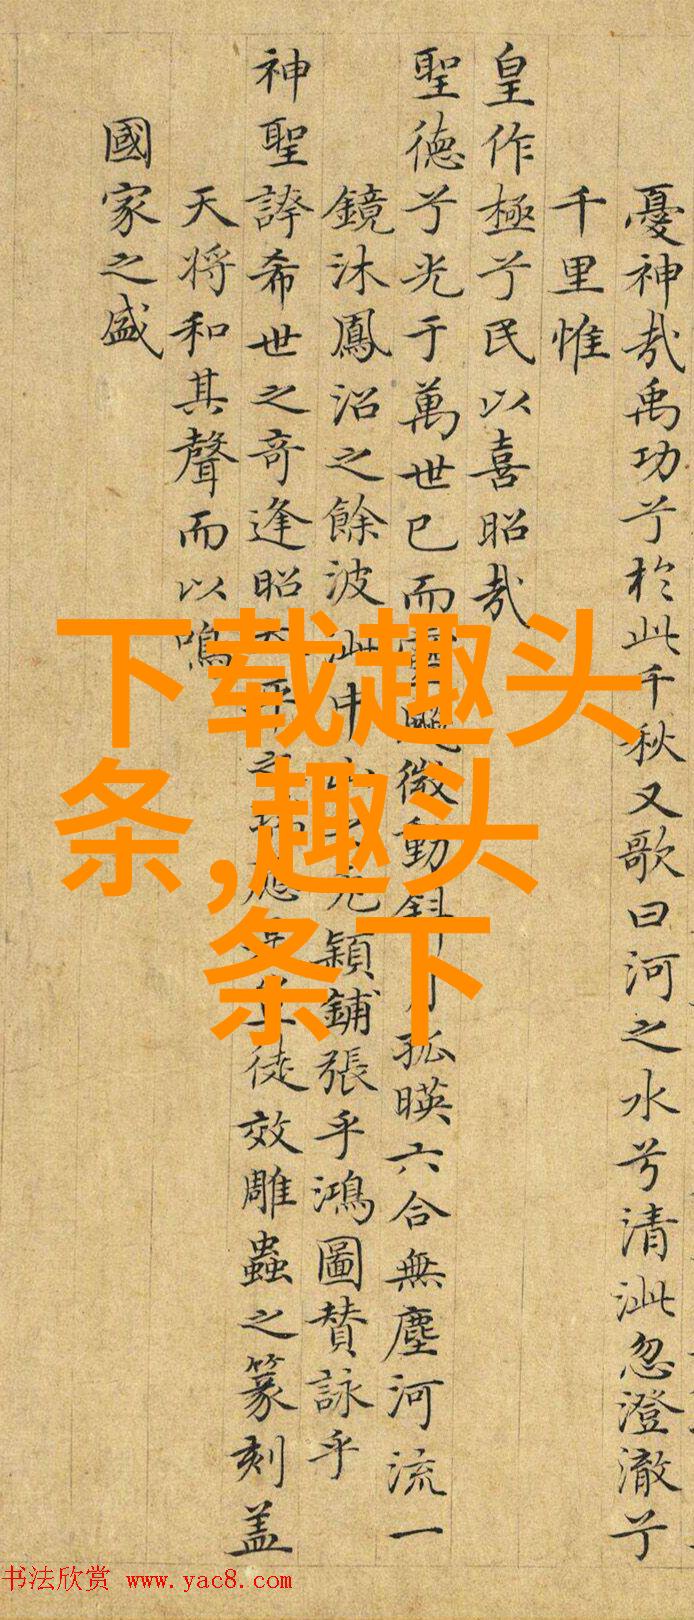 憂神哉禹功兮於此千秋又歌曰河之水兮清泚忽澄澈兮
千里惟
皇作極兮民以喜昭哉
聖德兮光于萬世已而微動斜月孤暎六合無塵河流一
鏡沐鳳沼之餘波泚中山之元穎鋪張乎鴻圖賛詠乎
神聖誇希世之奇逢昭之徒效雕蟲之篆刻盖
天将和其聲而以鳴
國家之盛
下载趣头
条,趣头
条下
书法欣赏 www.yac8.com